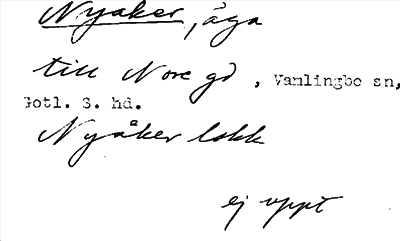 Nyåker, äga
till Nore gd, Vamlingbo sn,
Gotl. S. hd.
Nyåker lokk
ej uppt